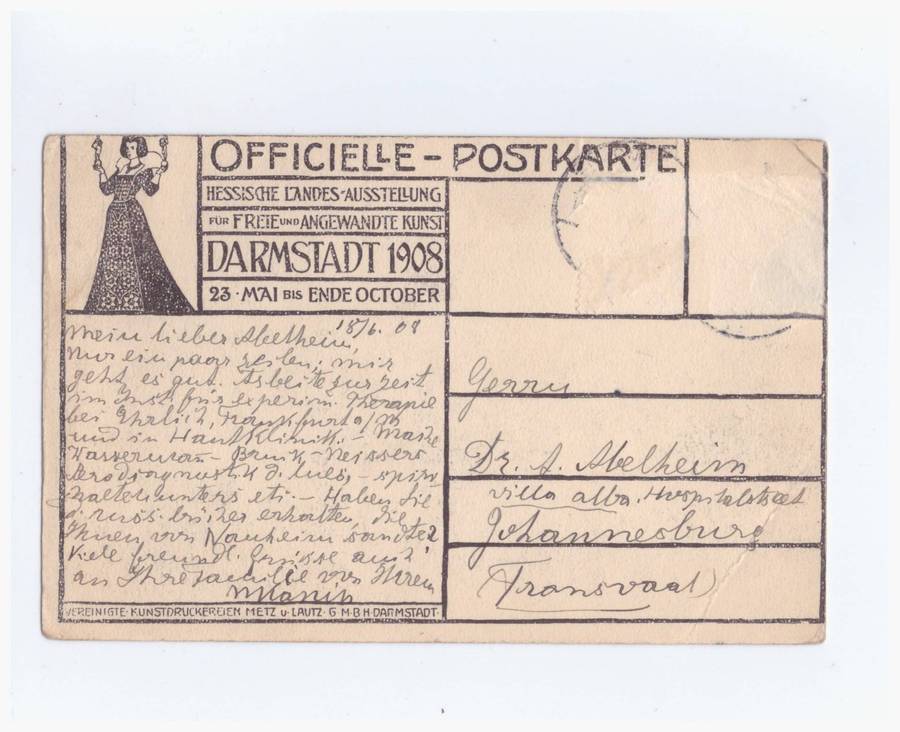 OFFICIELLE - POSTKARTE
HESSISCHE LANDES-AUSSTELLUNG
FÜR FREIE UND ANGEWANDTE KUNST
DARMSTADT 1908
23. MAI BIS ENDE OCTOBER
18/6. 08
Mein lieber Abelheim,
Nur ein paar Zeilen; mir
geht es gut. Arbeite zur Zeit
im Inst. für experim. Therapie
bei Ehrlich, Frankfurt a/M
und in Hautklinik. - Mache
Wasserman - Bruck - Neissers
Serodiagnostik d. Lues, - spiro
chaetenunters etc. - Haben Sie
d. russ. bücher erhalten, die
Ihnen von Nauheim sandte?
Viele freundl. Grüsse auch
an Ihre Familie von Ihrem
VEREINIGTE KUNSTDRUCKEREIEN METZ U. LAUTZ G M B H DARMSTADT
Herrn
Dr. A. Abelheim
villa alba. Hospitalstreet
Johannesburg
(Transvaal)